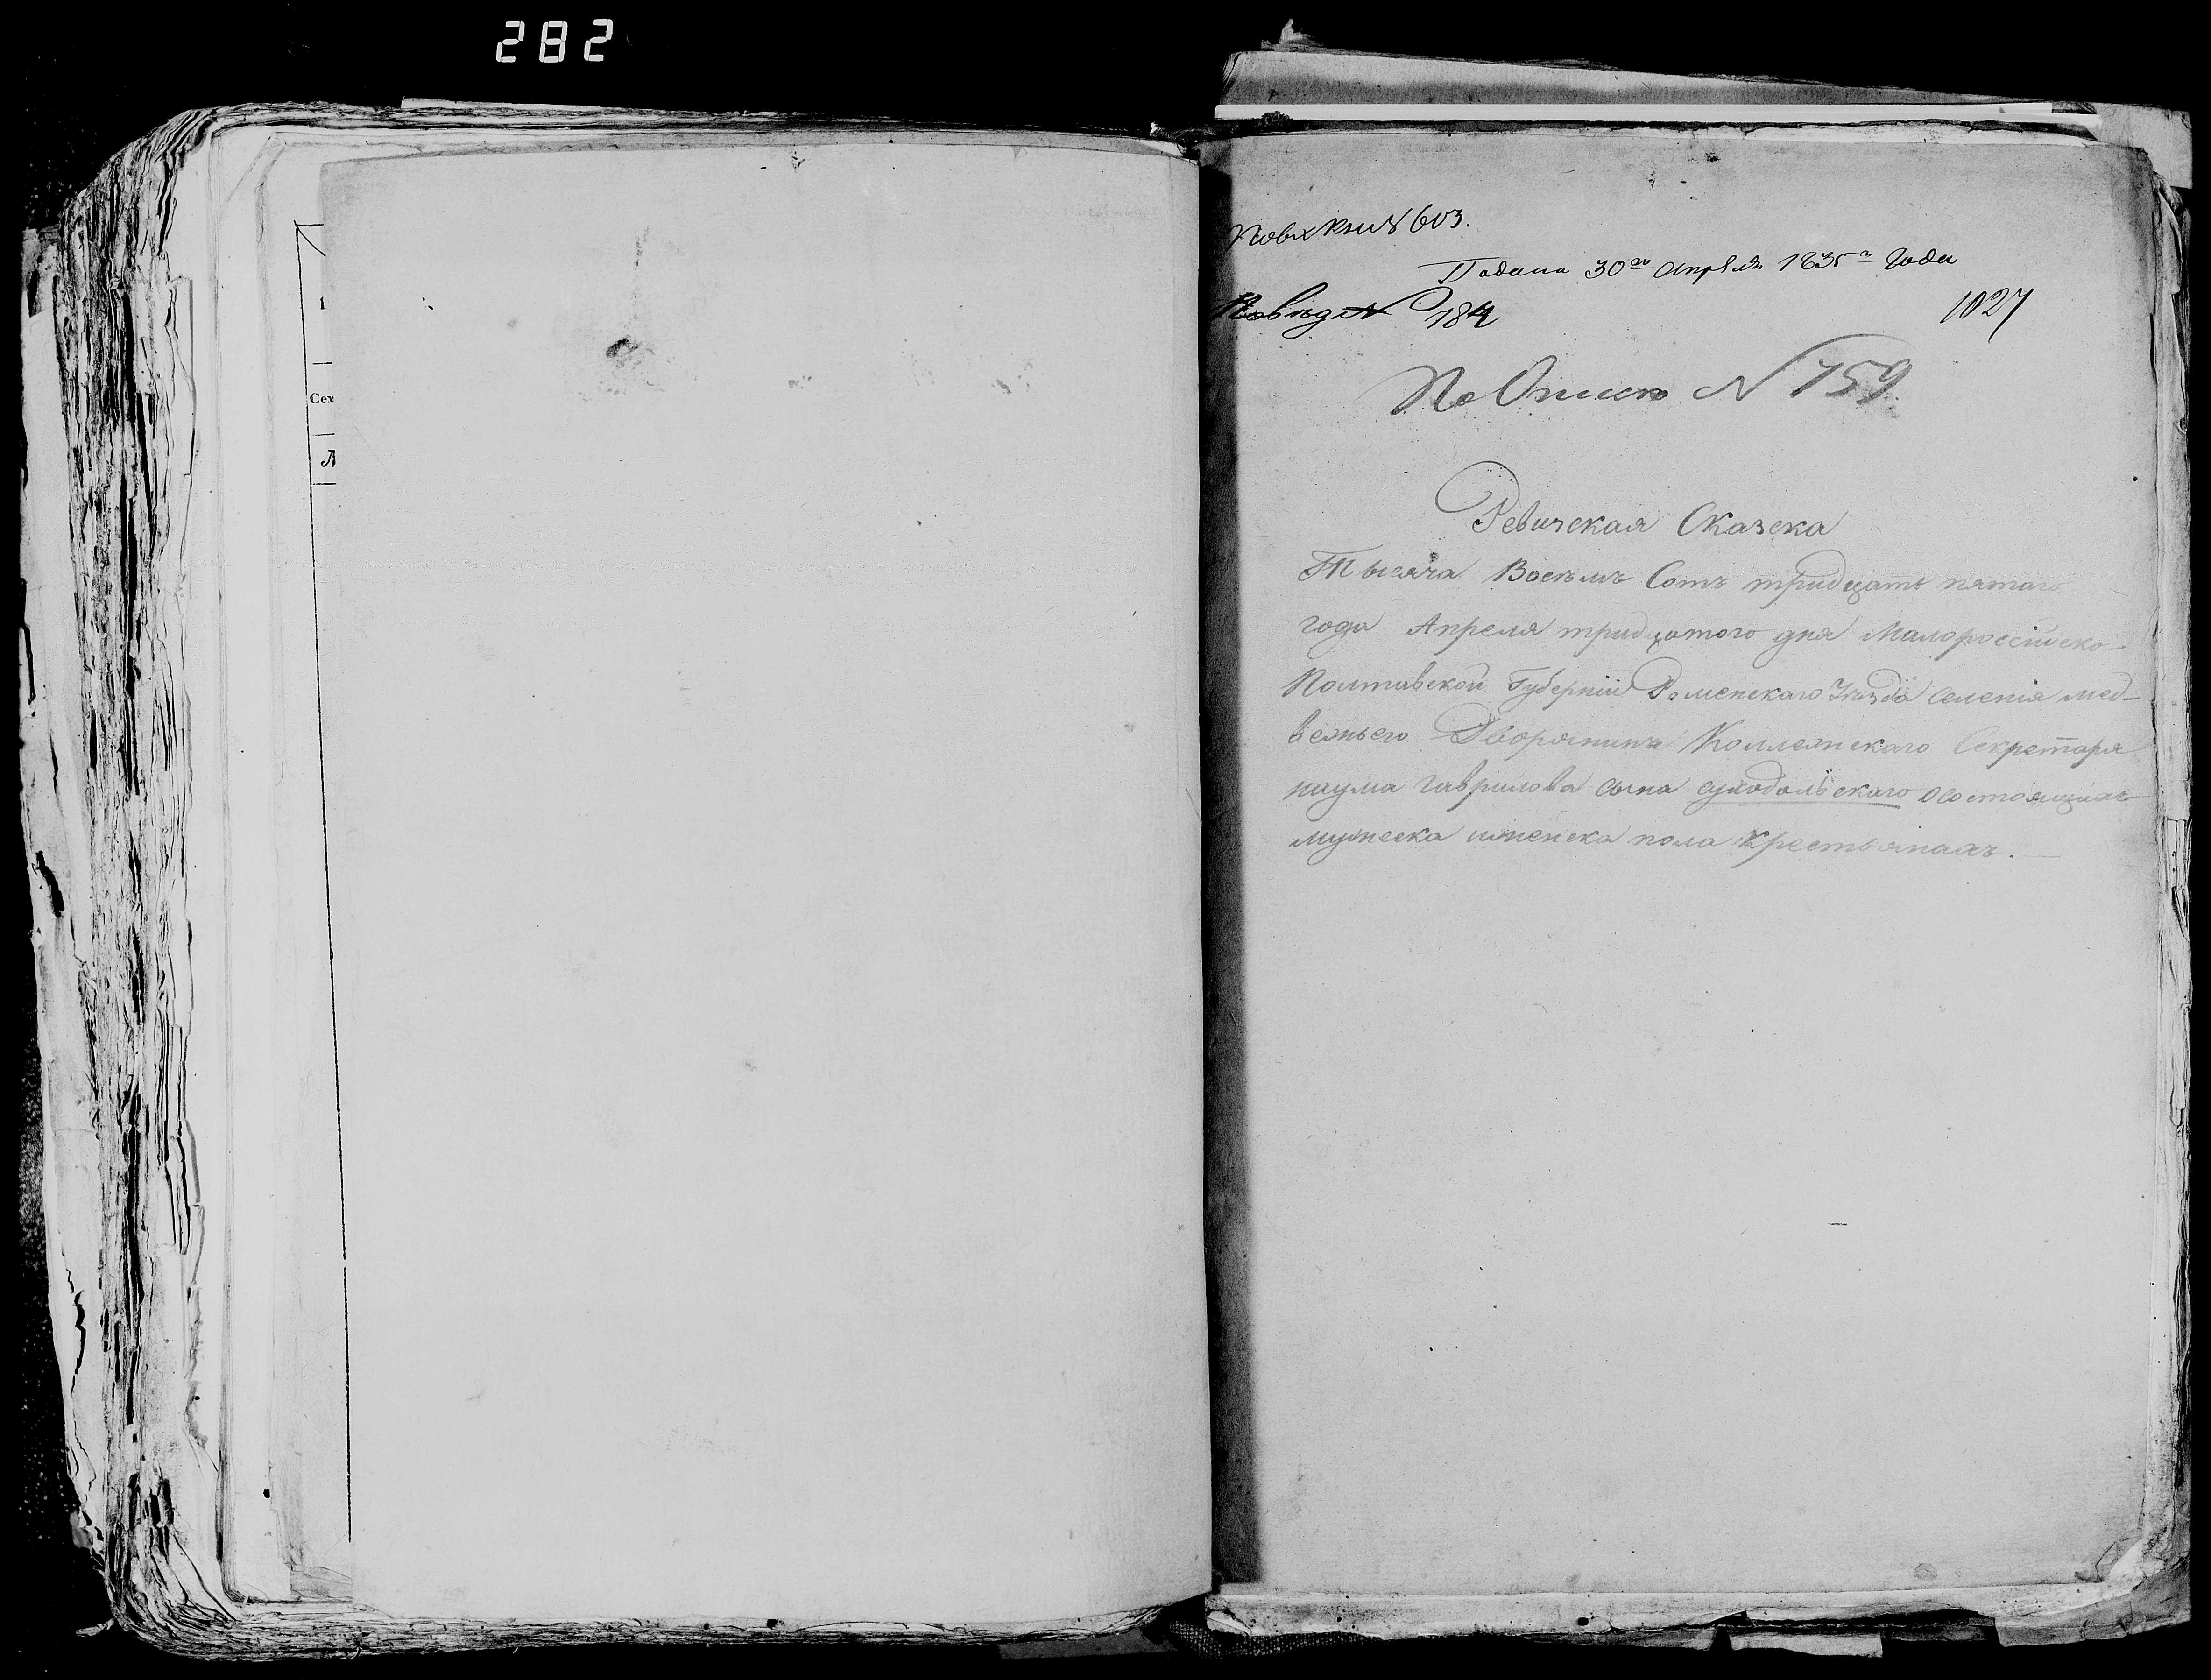 282
Сех
Л
По вх кни № 603.
Подана 30го Апреля 1835го Года
184
1027
По Описи N 759
Ревизская Сказска
Тысяча Восемъ Сотъ тридцать пятаго
года Апреля тридцатого дня Малороссійско-
Полтавской Губерніи Роменскаго уезда селенія мед-
вежьего Дворянина Коллежскаго Секретаря
наума гаврилова сына суходольскаго о состоящихъ
мужеска иженска пола крестьянахъ.